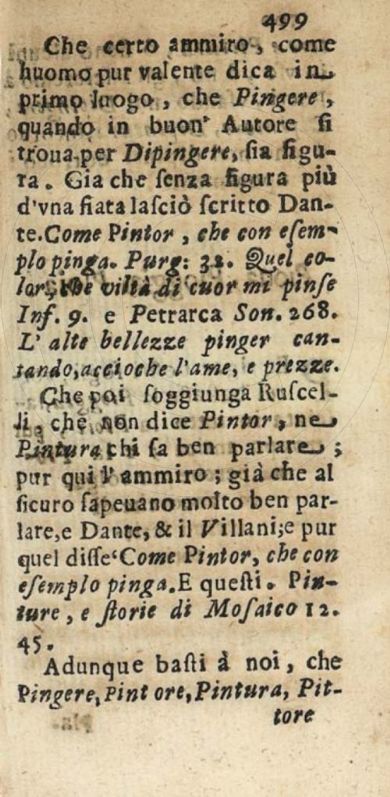 499
Che certo ammiro, come
huomo pur valente dica in
primo luogo, che Pingere,
quando in buon' Autore ſi
troua per Dipingere, ſia figu-
ra. Gia che ſenza figura più
d'vna fiata laſciò ſcritto Dan-
te. Come Pintor, che con eſem-
plo pinga. Purg: 32. Quel co-
lor, che viltà di cuor mi pinſe
Inf. 9. e Petrarca Son. 268.
L' alte bellezze pinger can-
tando, accioche l'ame, e prezze.
Che poi ſoggiunga Ruſcel-
li, che non dice Pintor, ne
Pintura chi ſa ben parlare;
pur qui l'ammiro; già che al
ſicuro ſapeuano molto ben par-
lare, e Dante, & il Villani; e pur
quel diſſe Come Pintor, che con
eſemplo pinga. E queſti. Pin-
ture, e ſtorie di Moſaico 12.
45.
Adunque baſti à noi, che
Pingere, Pintore, Pintura, Pit-
tore